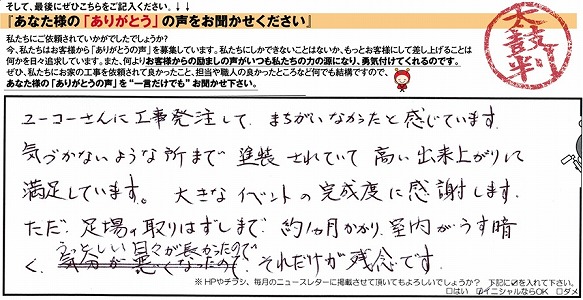 そして、最後にぜひこちらをご記入ください。↓↓
『あなた様の「ありがとう」の声をお聞かせください』
私たちにご依頼されていかがでしたでしょうか？
今、私たちはお客様から「ありがとうの声」を募集しています。私たちにしかできないことはないか、もっとお客様にして差し上げることは
何かを日々追求しています。また、何よりお客様からの励ましの声がいつも私たちの力の源になり、勇気付けてくれるのです。
ぜひ、私たちにお家の工事を依頼されて良かったこと、担当や職人の良かったところなど何でも結構ですので、
あなた様の「ありがとうの声」を“一言だけでも”お聞かせ下さい。
太鼓判
ユーコーさんに工事発注して、まちがいなかったと感じています。
気づかないような所まで塗装されていて高い出来上がりに
満足しています。大きなイベントの完成度に感謝します。
ただ、足場の取りはずしまで約1ヵ月かかり、室内がうす暗
うっとしい日々が長かったので
く、気分が悪くなったので、それだけが残念です。
※HPやチラシ、毎月のニュースレターに掲載させて頂いてもよろしいでしょうか？ 下記に☑を入れて下さい。
□はい ☑イニシャルならOK □ダメ